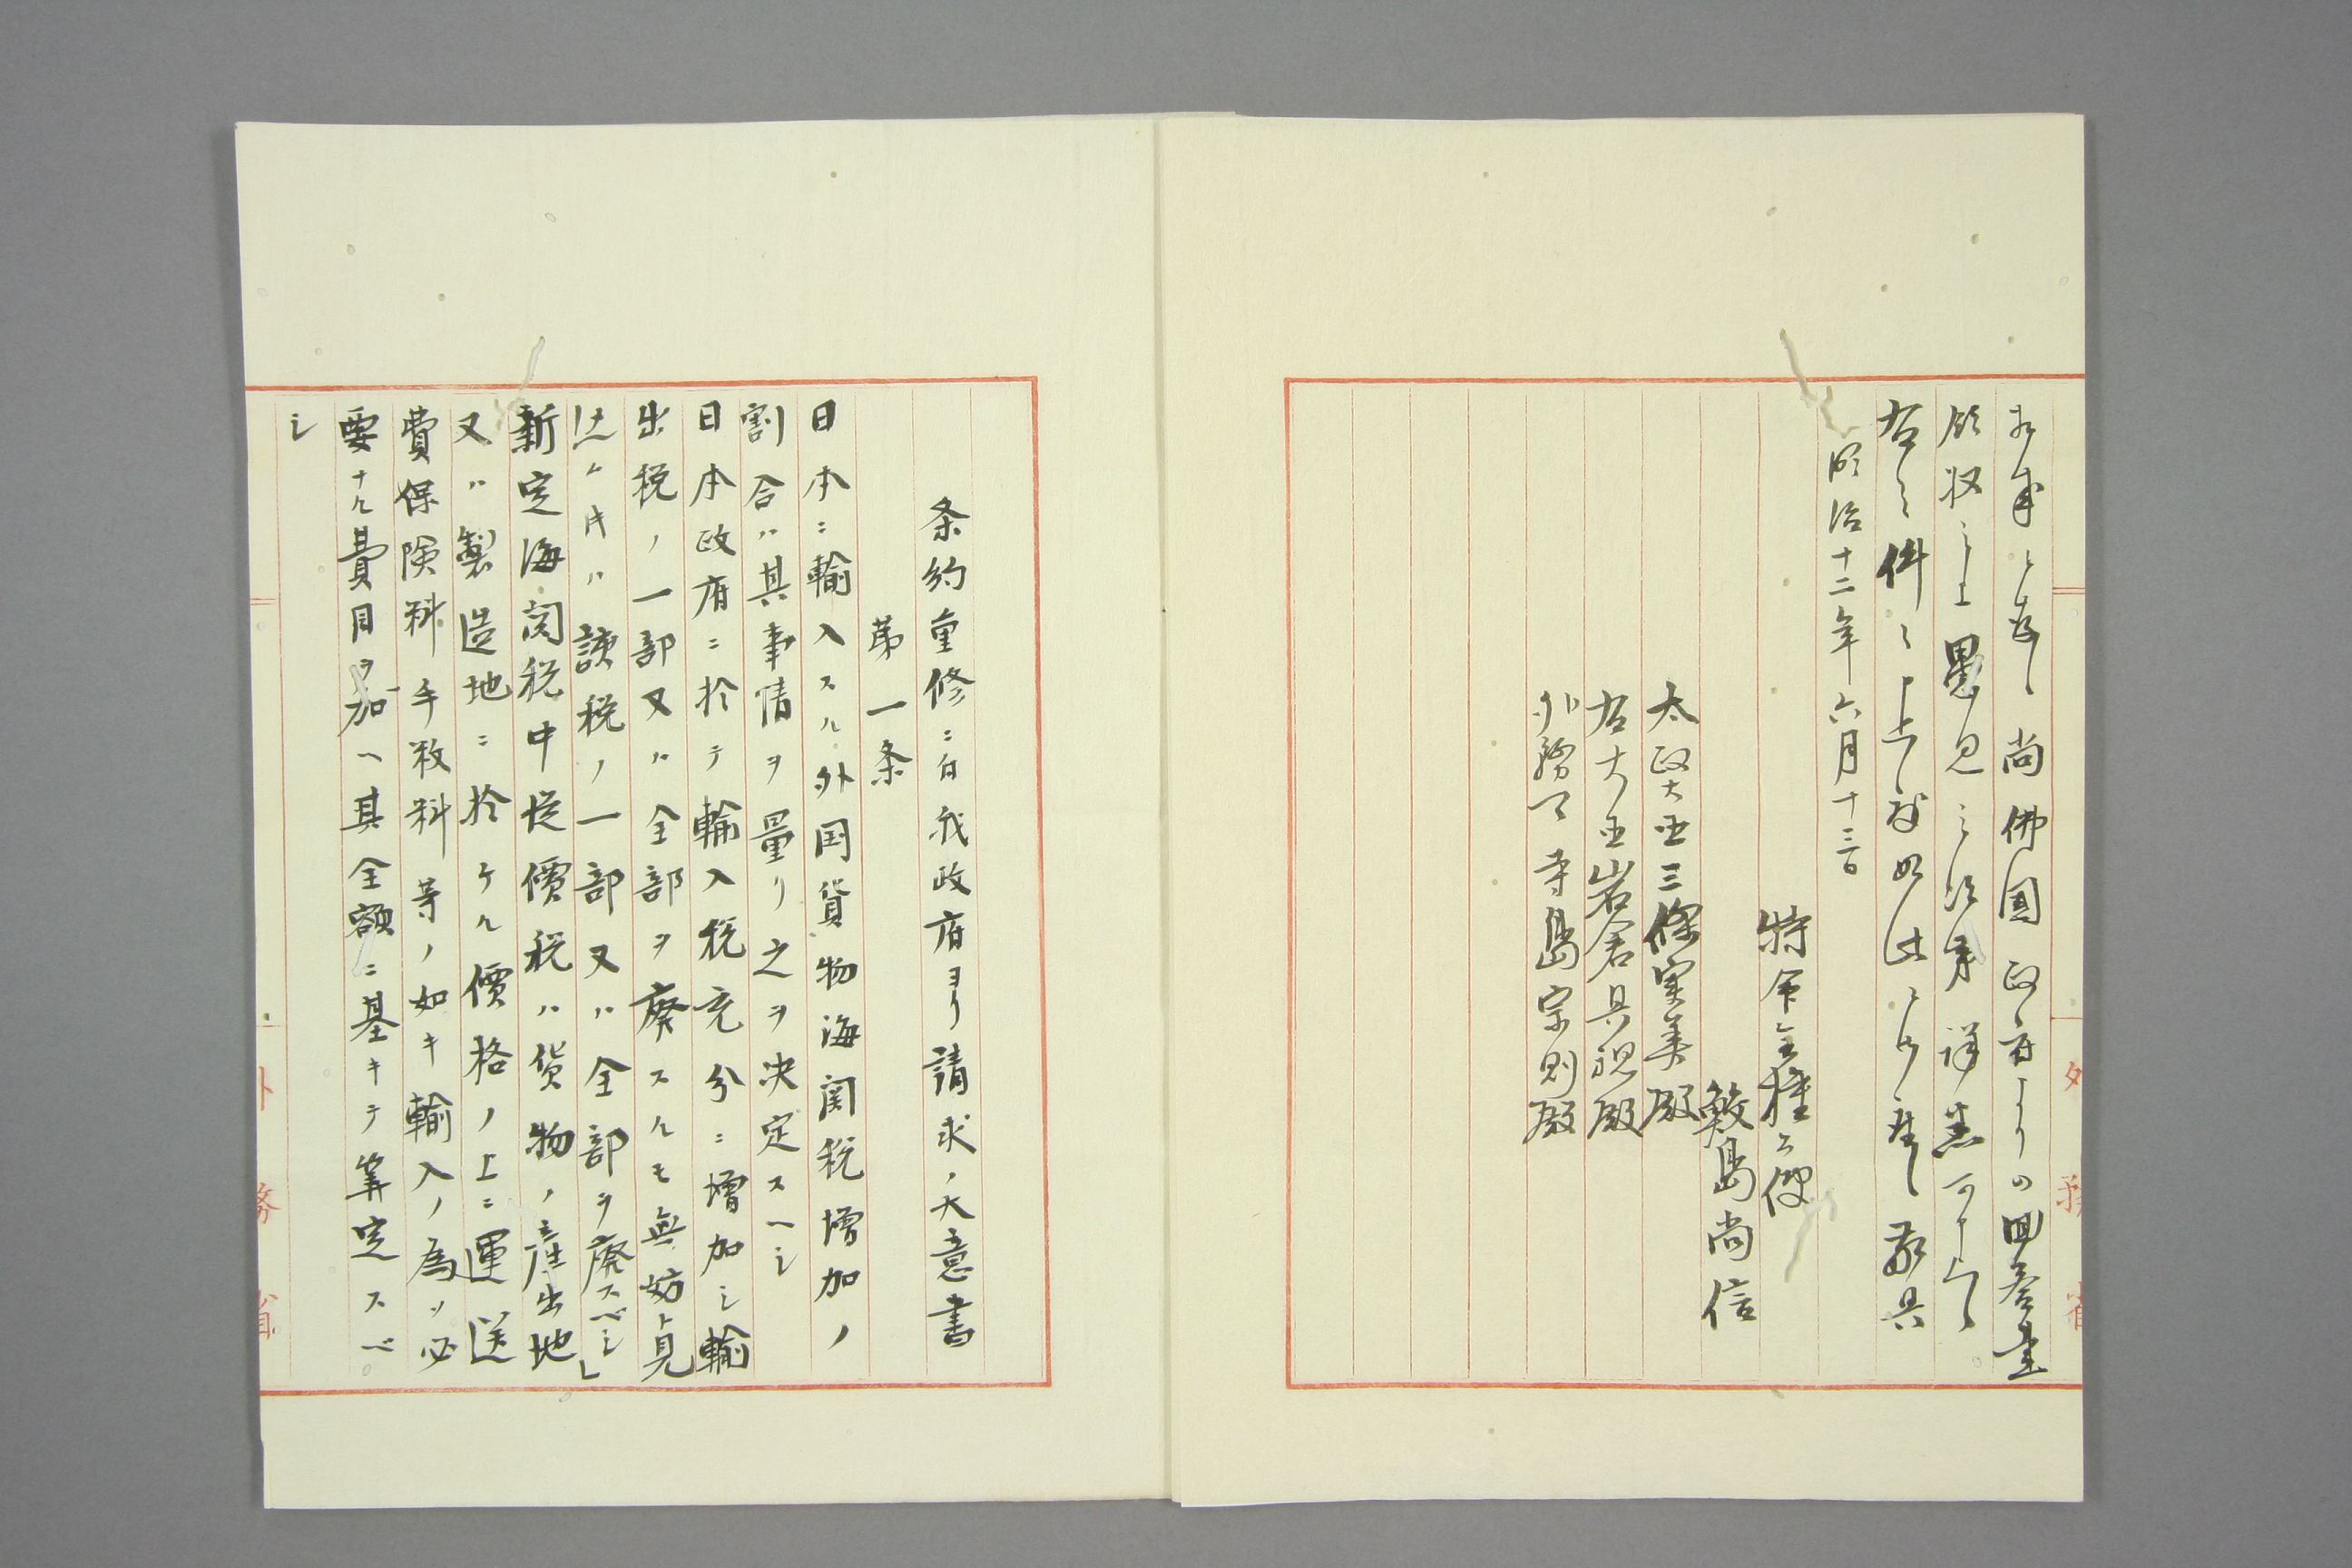 尚佛國政府ヨリの回答書
領収之上愚見之次第詳悉可申上
右之件々申上度如此ニ御座候敬具
明治十二年六月十三日
特命全権公使
鮫島尚信
太政大臣三條実美殿
右大臣岩倉具視殿
外務卿寺島宗則殿
条約重修ニ付我政府ヨリ請求ノ大意書
第一条
日本ニ輸入スル外国貨物海関税増加ノ
割合ハ其事情ヲ量リ之ヲ決定スヘシ
日本政府ニ於テ輸入税充分ニ増加シ輸
出税ノ一部又ハ全部ヲ廃スルモ無妨ト見
認ムル時ハ該税ノ一部又ハ全部ヲ廃スベシ」
新定海関税中従價税ハ貨物ノ産出地
又ハ製造地ニ於ケル價格ノ上ニ運送
費保険料手数料等ノ如キ輸入ノ為メ必
要ナル費目ヲ加ヘ其全額ニ基キテ算定スベ
シ
外務省
外務省